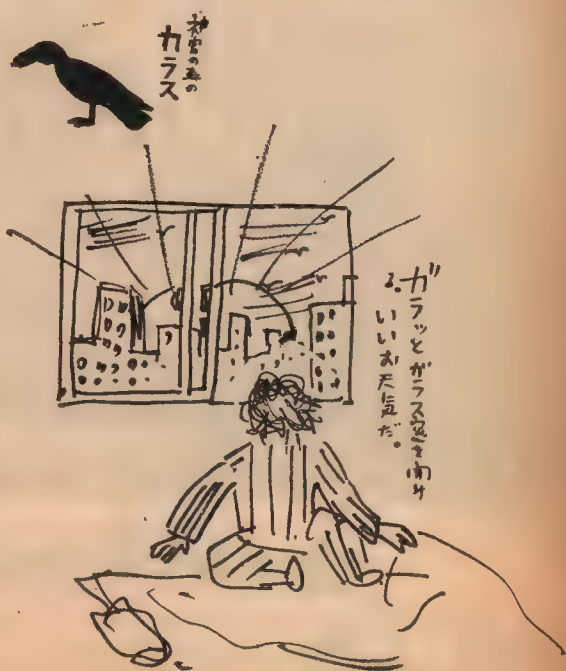 神宮の森の
カラス
ガラッとガラス窓を開け
る。いいお天気だ。